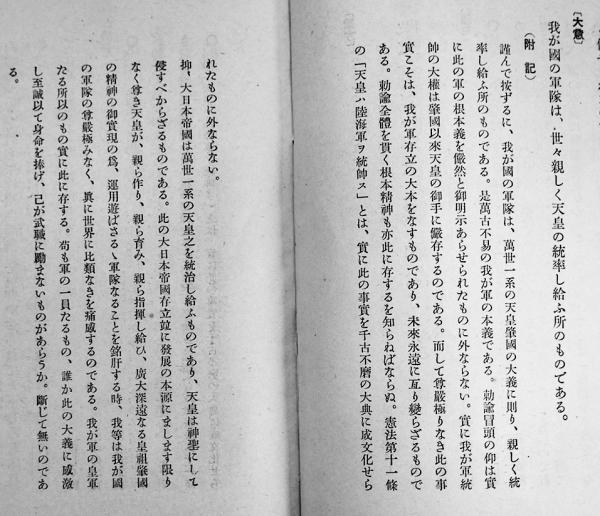 〔大意〕
我が國の軍隊は、世々親しく天皇の統率し給ふ所のものである。
（附記）
謹んで按ずるに、我が國の軍隊は、萬世一系の天皇肇國の大義に則り、親しく統
率し給ふ所のものである。是萬古不易の我が軍の本義である。勅諭冒頭の仰は實
に此の軍の根本義を儼然と御明示あらせられたものに外ならない。實に我が軍統
帥の大權は肇國以來天皇の御手に儼存するのである。而して尊嚴極りなき此の事
實こそは、我が軍存立の大本をなすものであり、未來永遠に亙り變らざるもので
ある。勅諭全體を貫く根本精神も亦此に存するを知らねばならぬ。憲法第十一條
の「天皇ハ陸海軍ヲ統帥ス」とは、實に此の事實を千古不磨の大典に成文化せら
れたものに外ならない。
抑〻大日本帝國は萬世一系の天皇之を統治し給ふものであり、天皇は神聖にして
侵すべからざるものである。此の大日本帝國存立竝に發展の本源にまします限り
なく尊き天皇が、親ら作り、親ら育み、親ら指揮し給ひ、廣大深遠なる皇祖肇國
の精神の御實現の爲、運用遊ばさるゝ軍隊なることを銘肝する時、我等は我が國
の軍隊の尊嚴極みなく、眞に世界に比類なきを痛感するのである。我が軍の皇軍
たる所以のもの實に此に存する。苟も軍の一員たるもの、誰か此の大義に感激
し至誠以て身命を捧げ、己が武職に勵まないものがあらうか。斷じて無いのであ
る。